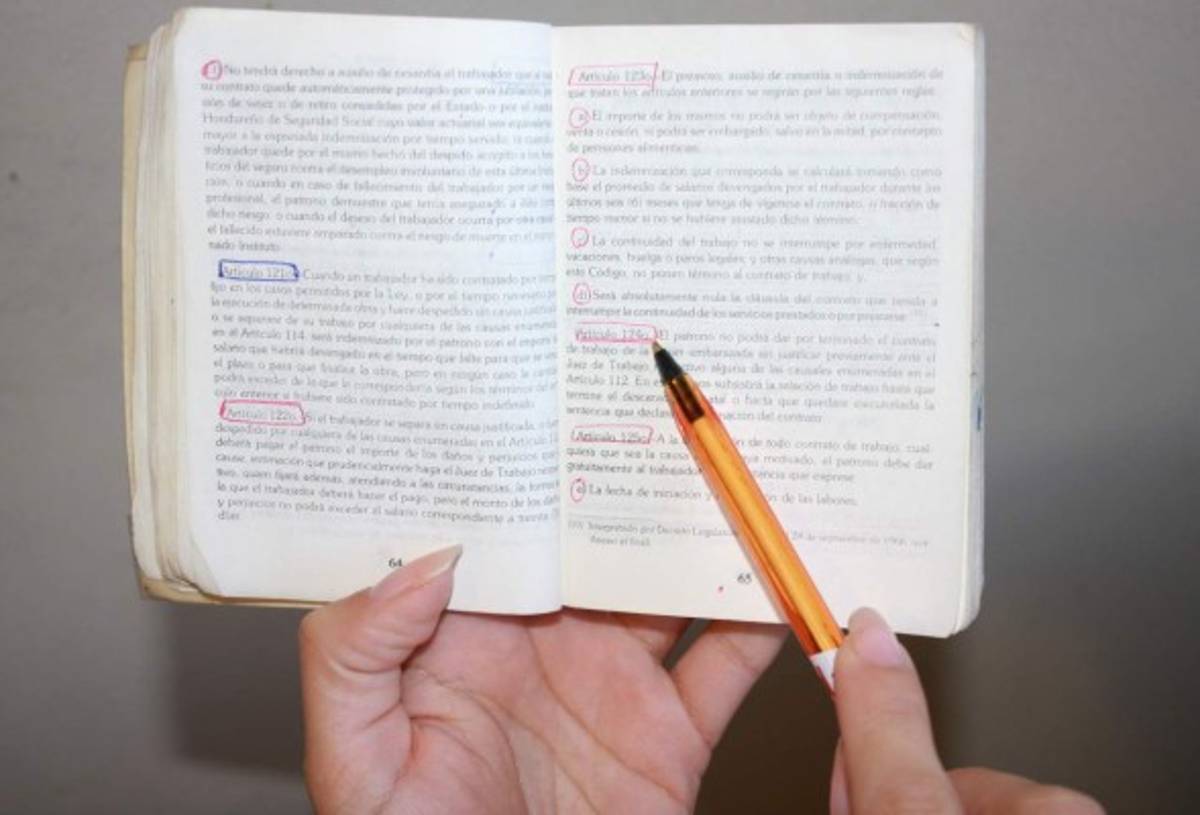 f) No tendrá derecho a auxilio de cesantía el trabajador que a
su contrato quede automáticamente protegido por una jubilación
sión de vejez o de retiro concedidas por el Estado o por el
Hondureño de Seguridad Social cuyo valor actuarial sea equivalente
mayor a la expresada indemnización por tiempo servido;
trabajador quede por el mismo hecho del despido acogido a los
ficios del seguro contra el desempleo involuntario de esta última
ción, o cuando en caso de fallecimiento del trabajador por un
profesional, el patrono demuestre que tenía asegurado a éste
dicho riesgo, o cuando el deceso del trabajador ocurra por
el fallecido estuviere amparado contra el riesgo de muerte en el
nado Instituto.
Artículo 121o.- Cuando un trabajador ha sido contratado por
fijo en los casos permitidos por la Ley, o por el tiempo necesario
la ejecución de determinada obra y fuere despedido sin causa
o se separare de su trabajo por cualquiera de las causas
en el Artículo 114, será indemnizado por el patrono con el
salario que habría devengado en el tiempo que falte para que se
el plazo o para que finalice la obra, pero en ningún caso la
podrá exceder de lo que le correspondería según los términos del
culo anterior si hubiere sido contratado por tiempo indefinido.
Artículo 122o.- Si el trabajador se separa sin causa justificada, o
despedido por cualquiera de las causas enumeradas en el Artículo
deberá pagar al patrono el importe de los daños y perjuicios que
cause, estimación que prudencialmente haga el Juez de Trabajo
tivo, quien fijará además, atendiendo a las circunstancias, la forma
la que el trabajador deberá hacer el pago, pero el monto de los
y perjuicios no podrá exceder al salario correspondiente a treinta
días.
64
Artículo 123o.- El preaviso, auxilio de cesantía o indemnización de
que tratan los artículos anteriores se regirán por las siguientes reglas:
a) El importe de los mismos no podrá ser objeto de compensación,
venta o cesión, ni podrá ser embargado, salvo en la mitad, por concepto
de pensiones alimenticias;
b) La indemnización que corresponda se calculará tomando como
base el promedio de salarios devengados por el trabajador durante los
últimos seis (6) meses que tenga de vigencia el contrato, o fracción de
tiempo menor si no se hubiere ajustado dicho término;
c) La continuidad del trabajo no se interrumpe por enfermedad,
vacaciones, huelga o paros legales, y otras causas análogas, que según
este Código, no ponen término al contrato de trabajo, y,
d) Será absolutamente nula la cláusula del contrato que tienda a
interrumpir la continuidad de los servicios prestados o por prestarse.
Artículo 124o.- El patrono no podrá dar por terminado el contrato
de trabajo de la embarazada sin justificar previamente ante el
Juez de Trabajo alguna de las causales enumeradas en el
Artículo 112. En subsistirá la relación de trabajo hasta que
termine el descanso o hasta que quedare ejecutoriada la
sentencia que declare del contrato.
Artículo 125o.- A la de todo contrato de trabajo, cual-
quiera que sea la causa motivado, el patrono debe dar
gratuitamente al trabajador que exprese:
a) La fecha de iniciación y de las labores;
Interpretado por Decreto Legislativo de septiembre de
65